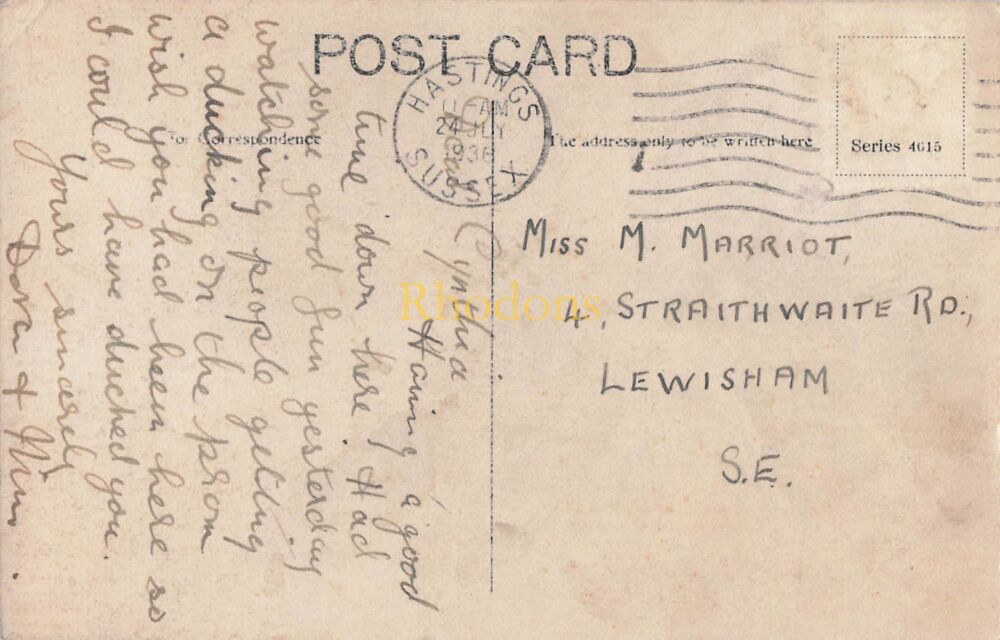 POST CARD
For Correspondence
The address only to be written here
Series 4615
HASTINGS
11 AM
24 JLY
1936
SUSSEX
Dear Cynthia
Having a good
time down here. Had
some good fun yesterday
watching people getting
a ducking on the prom
wish you had been here so
I could have ducked you.
Yours sincerely
Dora &
MISS M. MARRIOT,
4, STRAITHWAITE RD.,
LEWISHAM
S.E.
Rhodons